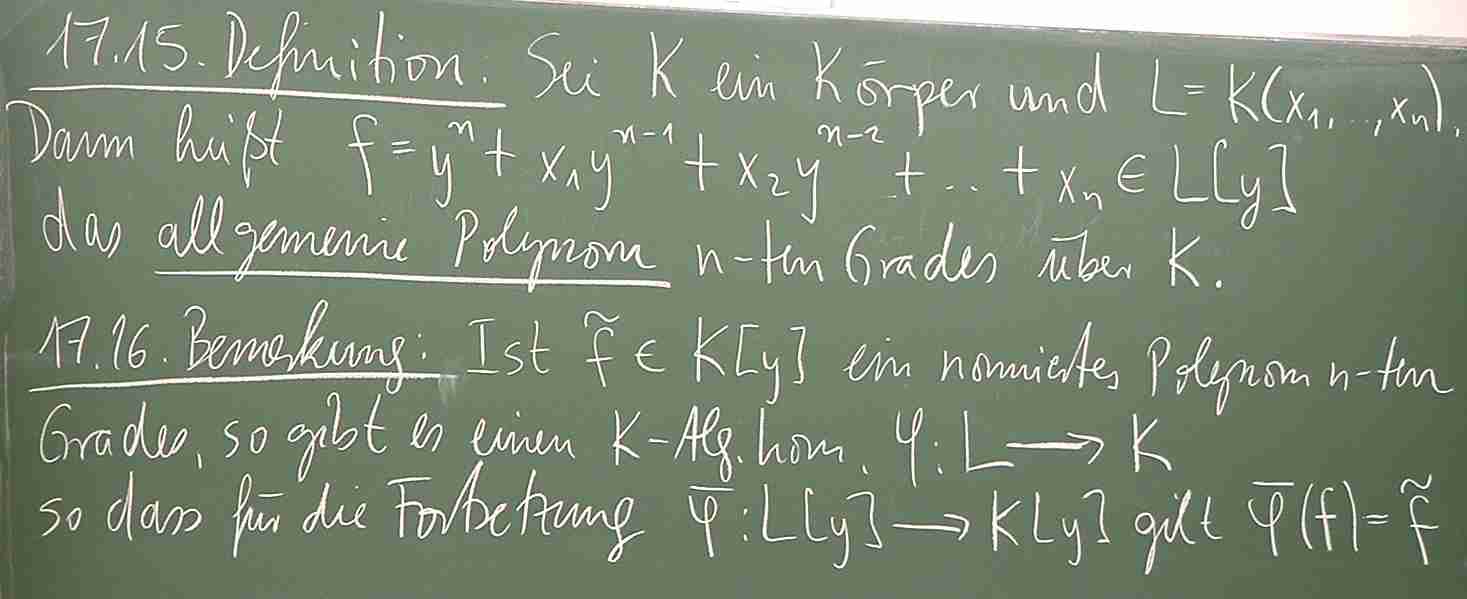 17.15. Definition: Sei K ein Körper und L = K(x₁,..,xₙ).
Dann heißt f = yⁿ + x₁yⁿ⁻¹ + x₂yⁿ⁻² + .. + xₙ ∈ L[y]
das allgemeine Polynom n-ten Grades über K.
17.16. Bemerkung: Ist f̃ ∈ K[y] ein normiertes Polynom n-ten
Grades, so gibt es einen K-Alg.hom. φ: L ⟶ K
so dass für die Fortsetzung φ̅: L[y] ⟶ K[y] gilt φ̅(f) = f̃